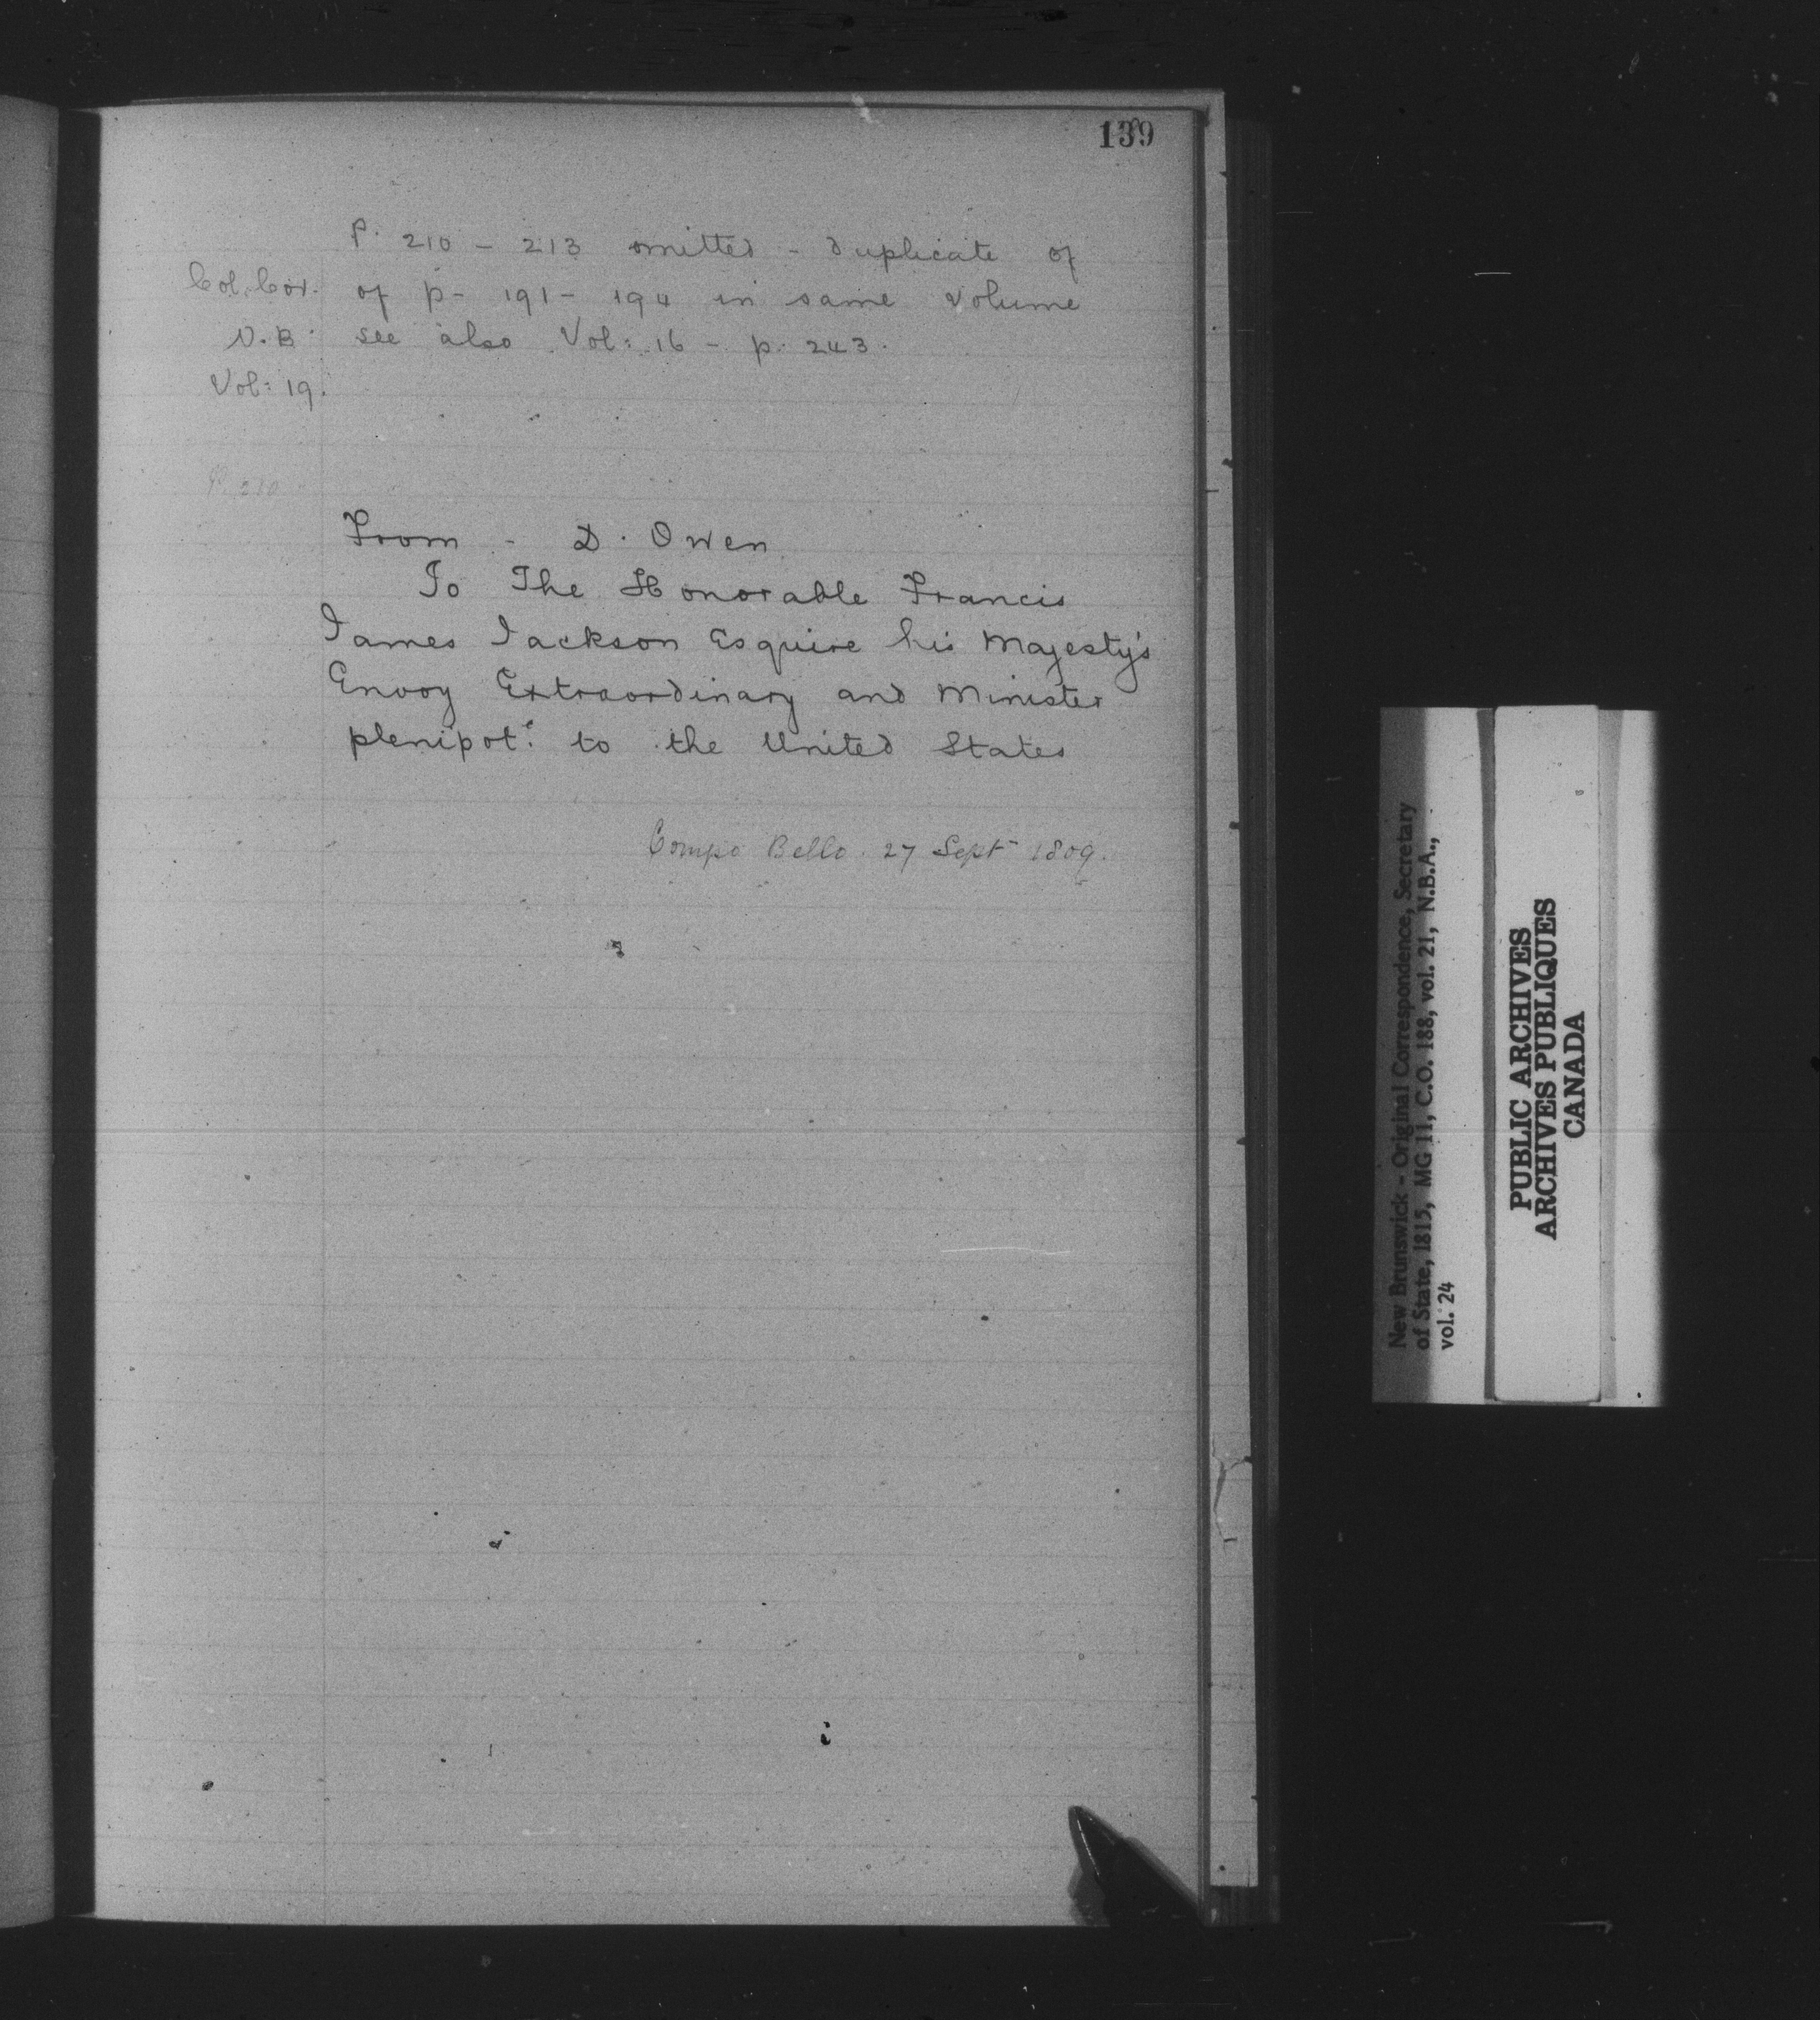 139
P. 210 - 213 omitted - duplicate of
Col. Cor. of p- 191 - 194 in same volume
N.B. see also Vol: 16 - p. 243.
Vol: 19.
P. 210
From - D. Owen
To The Honorable Francis
James Jackson Esquire his Majesty's
Envoy Extraordinary and Minister
plenipot: to the United States
Compo Bello. 27 Sept 1809.
New Brunswick - Original Correspondence, Secretary
of State, 1815, MG 11, C.O. 188, vol. 21, N.B.A.,
vol. 24
PUBLIC ARCHIVES
ARCHIVES PUBLIQUES
CANADA